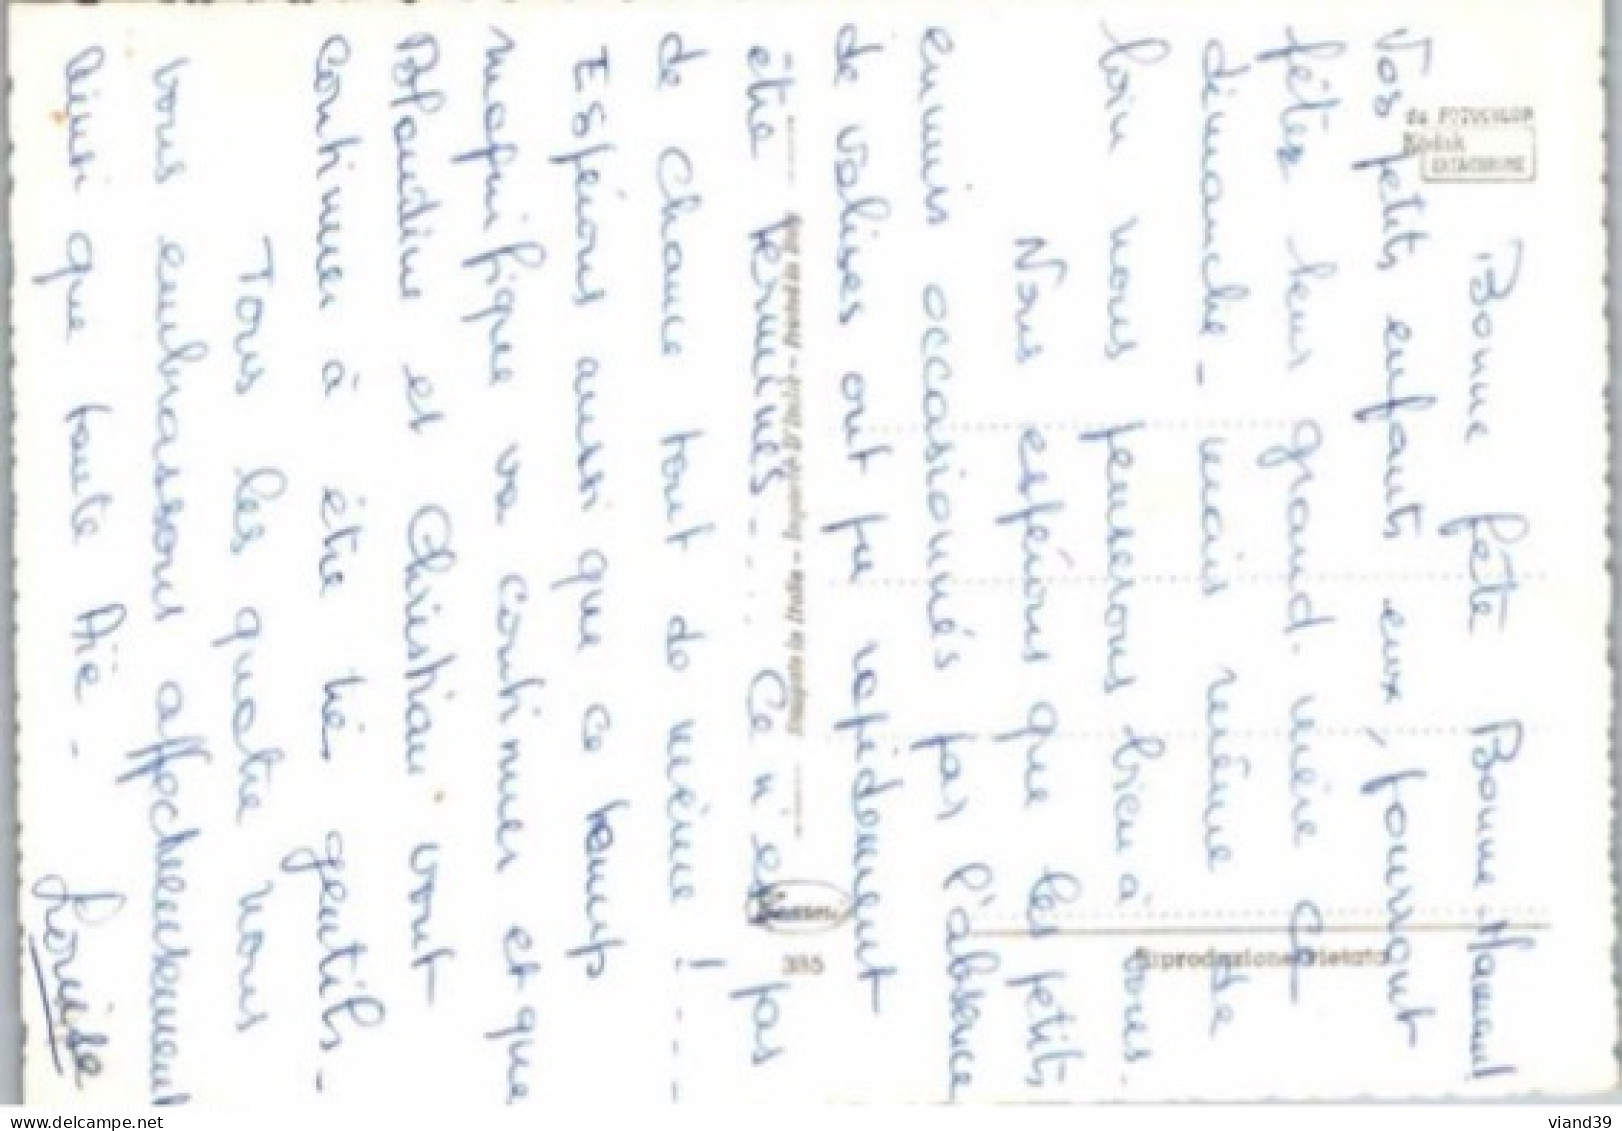 Bonne fête Bonne-Maman!
Vos petits enfants eux, pourront
fêter leur grand. mère ce
dimanche - mais même de
loin nous penserons bien à vous.
Nous espérons que les petits
ennuis occasionnés par l'absence
de valises ont pu rapidement
être terminés.... Ce n'est pas
de chance tout de même! ----
Espérons aussi que ce temps
magnifique va continuer et que
Blandine et Christian vont
continuer à être très gentils. -
Tous les quatre nous
vous embrassons affectueusement
ainsi que tante Aië -
Louise
da FOTOCOLOR
Kodak
EKTACHROME
Stampata in Italia - Importé D'Italie - Printed in Italy
385
Riproduzione vietata
viand39